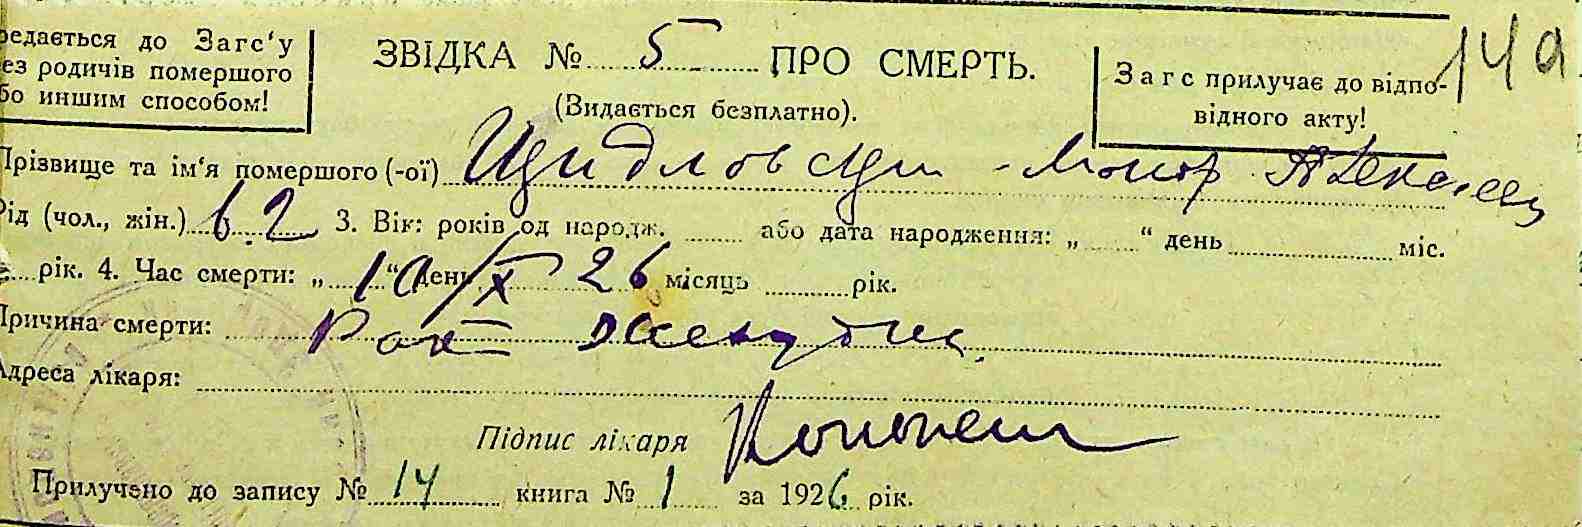 редається до Загс‘у
ез родичів помершого
бо иншим способом!
ЗВІДКА № 5 ПРО СМЕРТЬ.
(Видається безплатно).
Загс прилучає до відпо-
відного акту!
14а
Прізвище та ім‘я помершого (-ої)
Рід (чол., жін.) 62 3. Вік: років од народж. ........ або дата народження: „ ...... “ день ............ міс.
рік. 4. Час смерти: „ 10 “ день /X 26 місяць ........ рік.
Причина смерти: Рак желудка
Адреса лікаря:
Підпис лікаря
Прилучено до запису № 14 книга № 1 за 1926 рік.